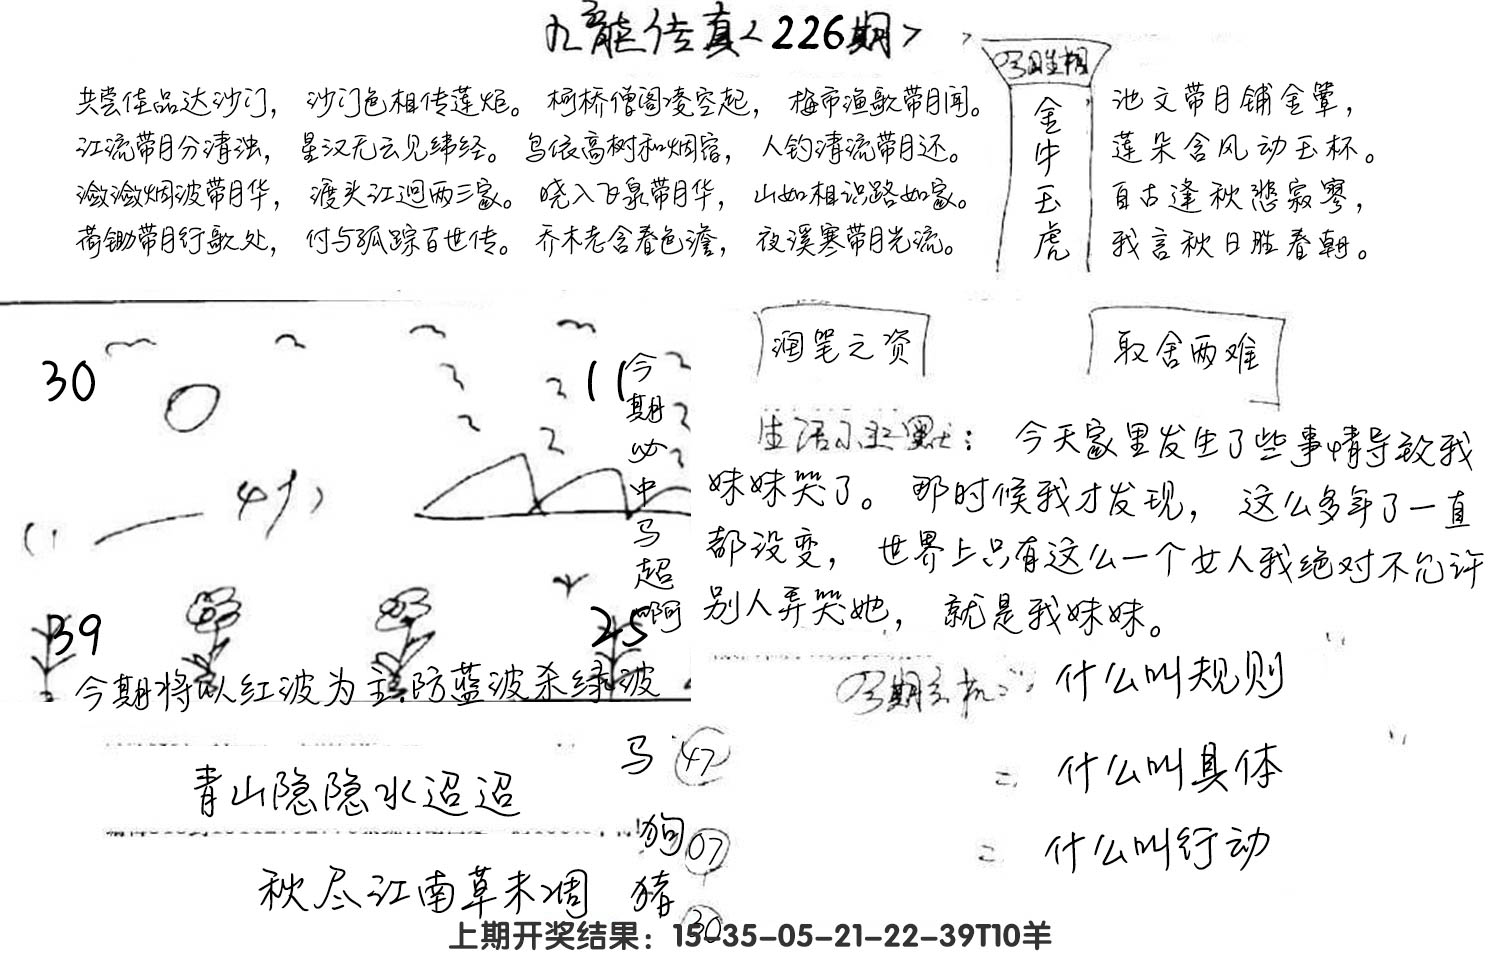 九龍传真<226期>
共尝佳品达沙门，沙门色相传莲炬。柯桥僧阁凌空起，梅市渔歌带月闻。
江流带月分清浊，星汉无云见纬经。鸟依高树和烟宿，人钓清流带月还。
潋潋烟波带月华，渡头江迥两三家。晓入飞泉带月华，山如相识路如家。
荷锄带月行歌处，付与孤踪百世传。乔木老含春色澹，夜溪寒带月光流。
今日生相
金牛玉虎
池文带月铺金簟，
莲朵含风动玉杯。
自古逢秋悲寂寥，
我言秋日胜春朝。
30
11
39
25
今期必中马超啊
今期将以红波为主防蓝波杀绿波
青山隐隐水迢迢
秋尽江南草未凋
马 47
狗 07
猪 30
润笔之资
取舍两难
生活小幽默：今天家里发生了些事情导致我
妹妹哭了。那时候我才发现，这么多年了一直
都没变，世界上只有这么一个女人我绝对不允许
别人弄哭她，就是我妹妹。
今期玄机
什么叫规则
什么叫具体
什么叫行动
上期开奖结果：15-35-05-21-22-39T10羊